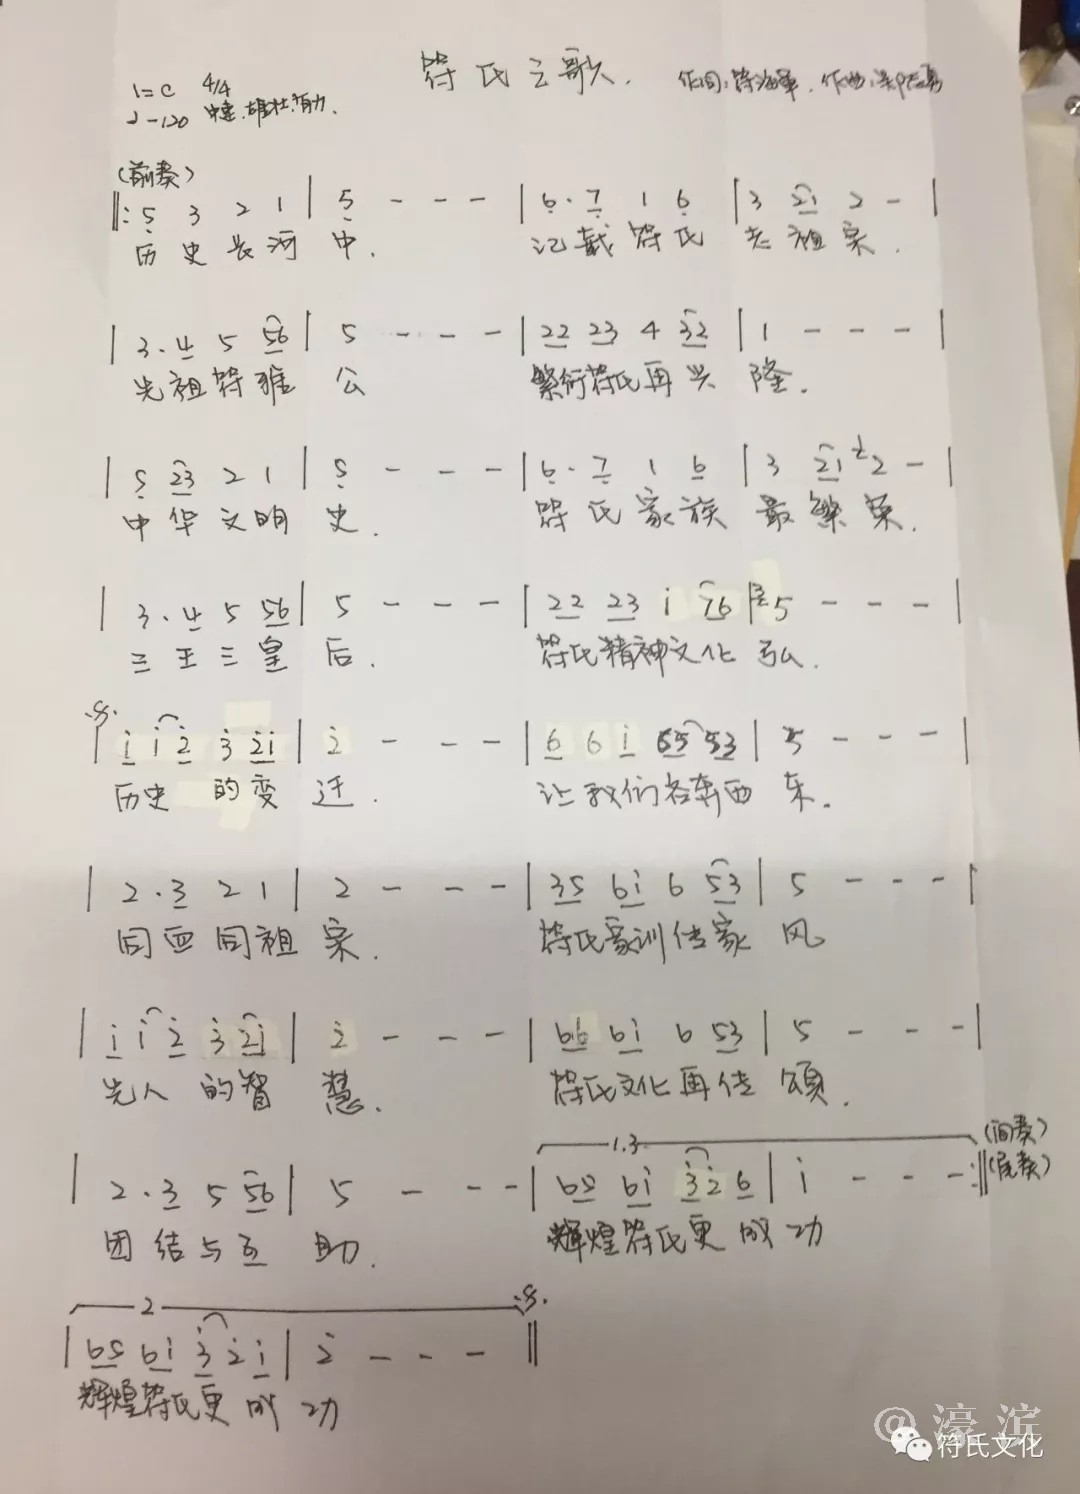 符氏之歌.
1=C 4/4 作词:符海军. 作曲:
♩-120 中速.雄壮.有力.
(前奏)
‖: 5 3 2 1 | 5 - - - | 6· 7 1 6 | 3 21 2 - |
历史长河中. 记载符氏老祖宗.
| 3·4 5 56 | 5 - - - | 22 23 4 32 | 1 - - - |
先祖符雅公 繁衍符氏再兴隆.
| 5 23 2 1 | 5 - - - | 6· 7 1 6 | 3 21 2 - |
中华文明史. 符氏家族最繁荣.
| 3·4 5 56 | 5 - - - | 22 23 i 76 | 5 - - - |
三王三皇后. 符氏精神文化弘.
| i i 2 3 2i | 2 - - - | 6 6 i 65 53 | 5 - - - |
历史的变迁. 让我们各奔西东.
| 2·3 2 1 | 2 - - - | 35 6i 6 53 | 5 - - - |
同血同祖宗. 符氏家训传家风
| i i 2 3 2i | 2 - - - | 66 6i 6 53 | 5 - - - |
先人的智慧. 符氏文化再传颂.
1.3 (间奏)
| 2·3 5 56 | 5 - - - | 65 6i 3 2 6 | i - - - :‖ (尾奏)
团结与互助. 辉煌符氏更成功
2
| 65 6i 3 2 i | 2 - - - ‖
辉煌符氏更成功
@濠滨
符氏文化